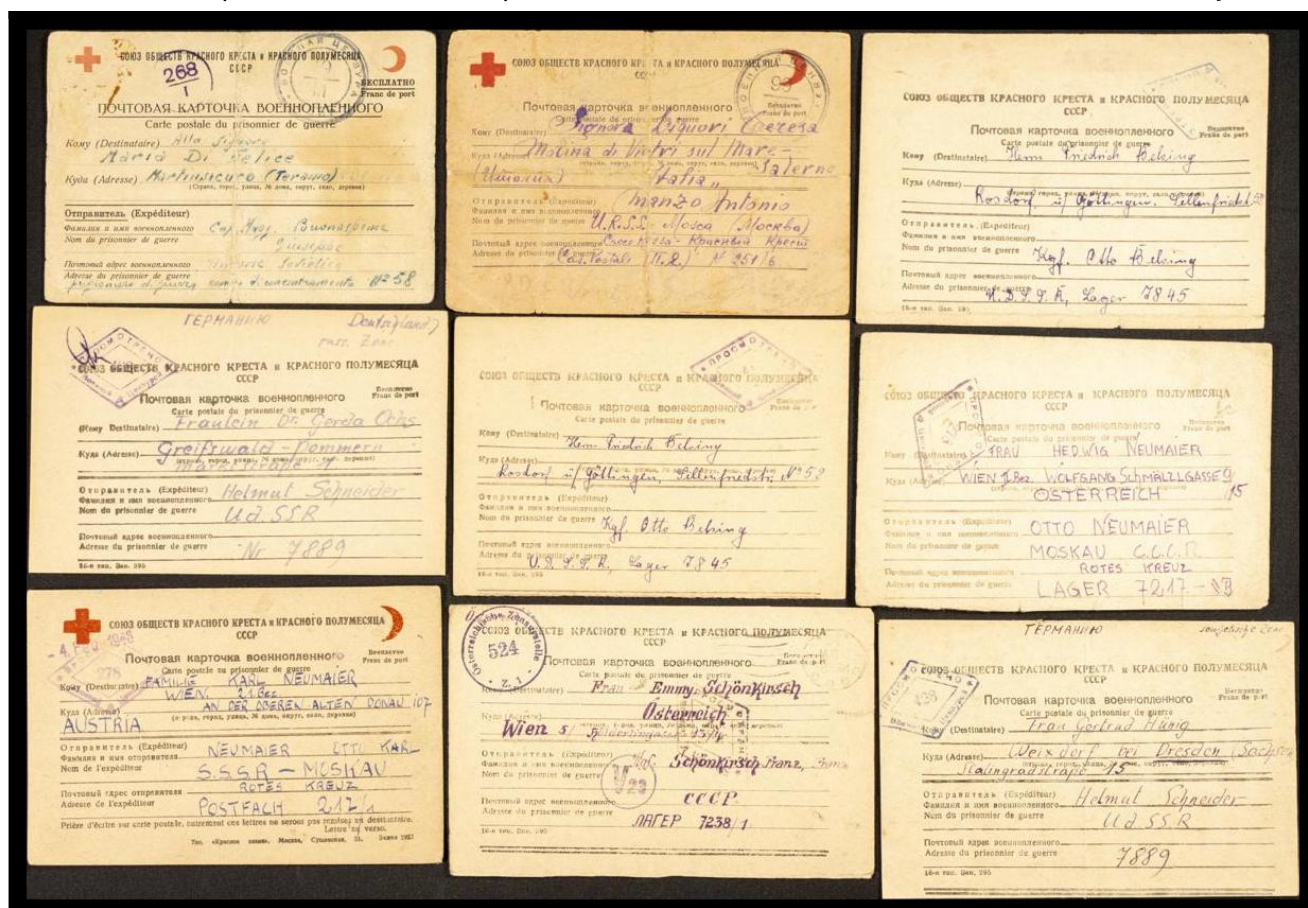 СОЮЗ ОБЩЕСТВ КРАСНОГО КРЕСТА и КРАСНОГО ПОЛУМЕСЯЦА
СССР
268
I
БЕСПЛАТНО
Franc de port
ПОЧТОВАЯ КАРТОЧКА ВОЕННОПЛЕННОГО
Carte postale du prisonnier de guerre
Кому (Destinataire) Alla Signora
Maria Di Felice
Куда (Adresse) Martinsicuro (Teramo)
(Страна, город, улица, № дома, округ, село, деревня)
Отправитель (Expéditeur)
Фамилия и имя военнопленного
Nom du prisonnier de guerre
Почтовый адрес военнопленного
Adresse du prisonnier de guerre
№ 58
СОЮЗ ОБЩЕСТВ КРАСНОГО КРЕСТА и КРАСНОГО ПОЛУМЕСЯЦА
Почтовая карточка военнопленного
Carte postale du prisonnier de guerre
Кому (Destinataire) Signora Liguori Teresa
Molina di Vietri sul Mare -
Salerno
(Италия) Italia
Отправитель (Expéditeur) Manzo Antonio
Фамилия и имя военнопленного
Nom du prisonnier de guerre U.R.S.S. Mosca (Москва)
Почтовый адрес военнопленного Красный Крест
№ 251/6
СОЮЗ ОБЩЕСТВ КРАСНОГО КРЕСТА и КРАСНОГО ПОЛУМЕСЯЦА
СССР
Почтовая карточка военнопленного
Бесплатно
Franc de port
Carte postale du prisonnier de guerre
Кому (Destinataire) Herrn Friedrich Behling
Куда (Adresse)
Rosdorf ü/ Göttingen.
Отправитель (Expéditeur)
Фамилия и имя военнопленного
Nom du prisonnier de guerre Kgf. Otto Behling
Почтовый адрес военнопленного
Adresse du prisonnier de guerre
Lager 7845
16-я тип. Зак. 295
ГЕРМАНИЮ
Deutschland
russ. Zone
ПРОСМОТРЕНО
СОЮЗ ОБЩЕСТВ КРАСНОГО КРЕСТА и КРАСНОГО ПОЛУМЕСЯЦА
СССР
Бесплатно
Franc de port
Почтовая карточка военнопленного
Carte postale du prisonnier de guerre
Кому (Destinataire) Fräulein Dr. Gerda Ochs
Куда (Adresse) Greifswald Pommern
Отправитель (Expéditeur) Helmut Schneider
Фамилия и имя военнопленного
Nom du prisonnier de guerre U.d.SSR
Почтовый адрес военнопленного
Adresse du prisonnier de guerre Nr 7889
16-я тип. Зак. 295
ПРОСМОТРЕНО
СОЮЗ ОБЩЕСТВ КРАСНОГО КРЕСТА и КРАСНОГО ПОЛУМЕСЯЦА
СССР
Почтовая карточка военнопленного
Carte postale du prisonnier de guerre
Кому (Destinataire) Herrn Friedrich Behling
Куда (Adresse)
Rosdorf ü/ Göttingen, № 52
Отправитель (Expéditeur)
Фамилия и имя военнопленного
Nom du prisonnier de guerre Kgf. Otto Behling
Почтовый адрес военнопленного
Adresse du prisonnier de guerre
Lager 7845
16-я тип. Зак. 295
СОЮЗ ОБЩЕСТВ КРАСНОГО КРЕСТА и КРАСНОГО ПОЛУМЕСЯЦА
СССР
Почтовая карточка военнопленного
Carte postale du prisonnier de guerre
Кому (Destinataire) FRAU HEDWIG NEUMAIER
Куда (Adresse) WIEN II. Bez. WOLFGANG SCHMÄLZLGASSE 9
ÖSTERREICH /15
Отправитель (Expéditeur)
Фамилия и имя военнопленного OTTO NEUMAIER
Nom du prisonnier de guerre
MOSKAU C.C.C.P.
Почтовый адрес военнопленного ROTES KREUZ
Adresse du prisonnier de guerre
LAGER 7217
СОЮЗ ОБЩЕСТВ КРАСНОГО КРЕСТА и КРАСНОГО ПОЛУМЕСЯЦА
СССР
278
Бесплатно
Franc de port
Почтовая карточка военнопленного
Carte postale du prisonnier de guerre
Кому (Destinataire) FAMILIE KARL NEUMAIER
WIEN, 21. Bez.
Куда (Adresse) AN DER OBEREN ALTEN DONAU 107
AUSTRIA
Отправитель (Expéditeur) NEUMAIER OTTO KARL
Фамилия и имя отправителя
Nom de l'expéditeur S.S.S.R - MOSKAU
Почтовый адрес отправителя ROTES KREUZ
Adresse de l'expéditeur POSTFACH 217/1
Prière d'écrire sur carte postale, autrement ces lettres ne seront pas remises au destinataire.
Lettre au verso.
Тип. «Красное знамя», Москва, Сущевская, 21.
Österreichische Zensurstelle
524
Z. 1
СОЮЗ ОБЩЕСТВ КРАСНОГО КРЕСТА и КРАСНОГО ПОЛУМЕСЯЦА
СССР
Почтовая карточка военнопленного
Carte postale du prisonnier de guerre
Кому (Destinataire) Frau Emmy Schönkirsch
Куда (Adresse) Österreich
Wien 5
Отправитель (Expéditeur)
Фамилия и имя военнопленного Schönkirsch Franz,
Nom du prisonnier de guerre
23
Почтовый адрес военнопленного CCCP.
Adresse du prisonnier de guerre
ЛАГЕР 7238/1
16-я тип. Зак. 295
ГЕРМАНИЮ
СОЮЗ ОБЩЕСТВ КРАСНОГО КРЕСТА и КРАСНОГО ПОЛУМЕСЯЦА
СССР
Почтовая карточка военнопленного
Бесплатно
Franc de port
Carte postale du prisonnier de guerre
Кому (Destinataire) Frau Gertrud Hünig
Куда (Adresse) Weixdorf bei Dresden (Sachsen
Stalingradstraße 15
Отправитель (Expéditeur) Helmut Schneider
Фамилия и имя военнопленного
Nom du prisonnier de guerre U.d.SSR
Почтовый адрес военнопленного
Adresse du prisonnier de guerre 7889
16-я тип. Зак. 295